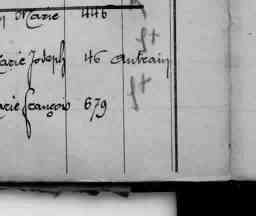 Marie 446
Marie Joseph 46 Autrain
Marie François 679